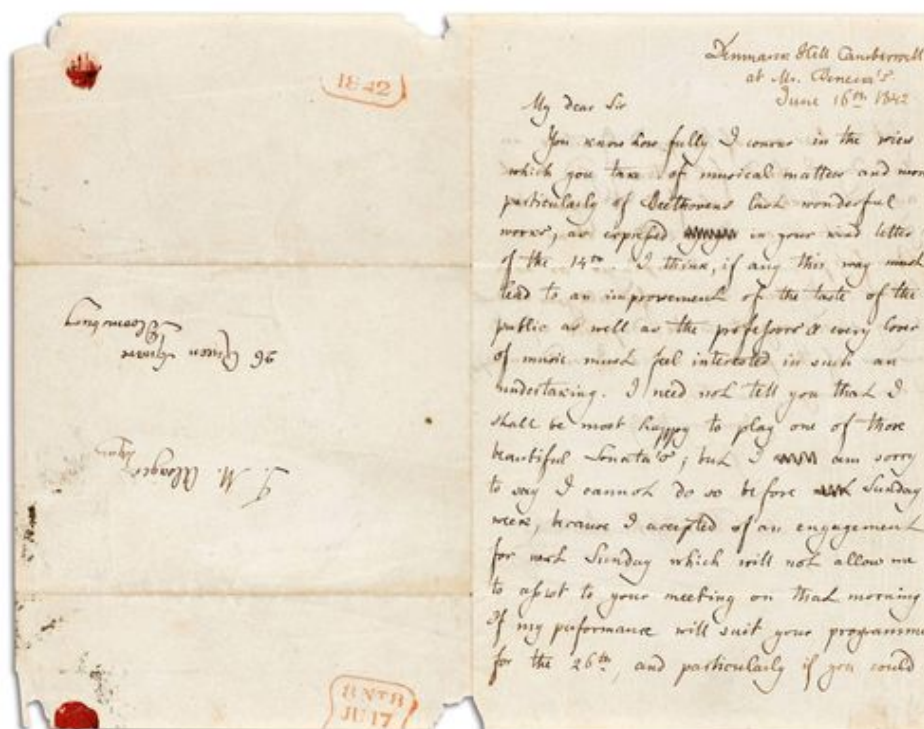 1842
26 Queen Square
Bloomsbury
T. M. Alsager
8 NT 8
JU 17
Denmark Hill Camberwell
at Mr. Benecke's
June 16th 1842
My dear Sir
You know how fully I concur in the view
which you take of musical matters and more
particularly of Beethovens last wonderful
works, as expressed in your kind letter
of the 14th. I think, if any this way must
lead to an improvement of the taste of the
public as well as the professors & every lover
of music must feel interested in such an
undertaking. I need not tell you that I
shall be most happy to play one of those
beautiful Sonata's; but I am sorry
to say I cannot do so before Sunday
week, because I accepted of an engagement
for next Sunday which will not allow me
to assist to your meeting on that morning
If my performance will suit your programme
for the 26th, and particularly if you could